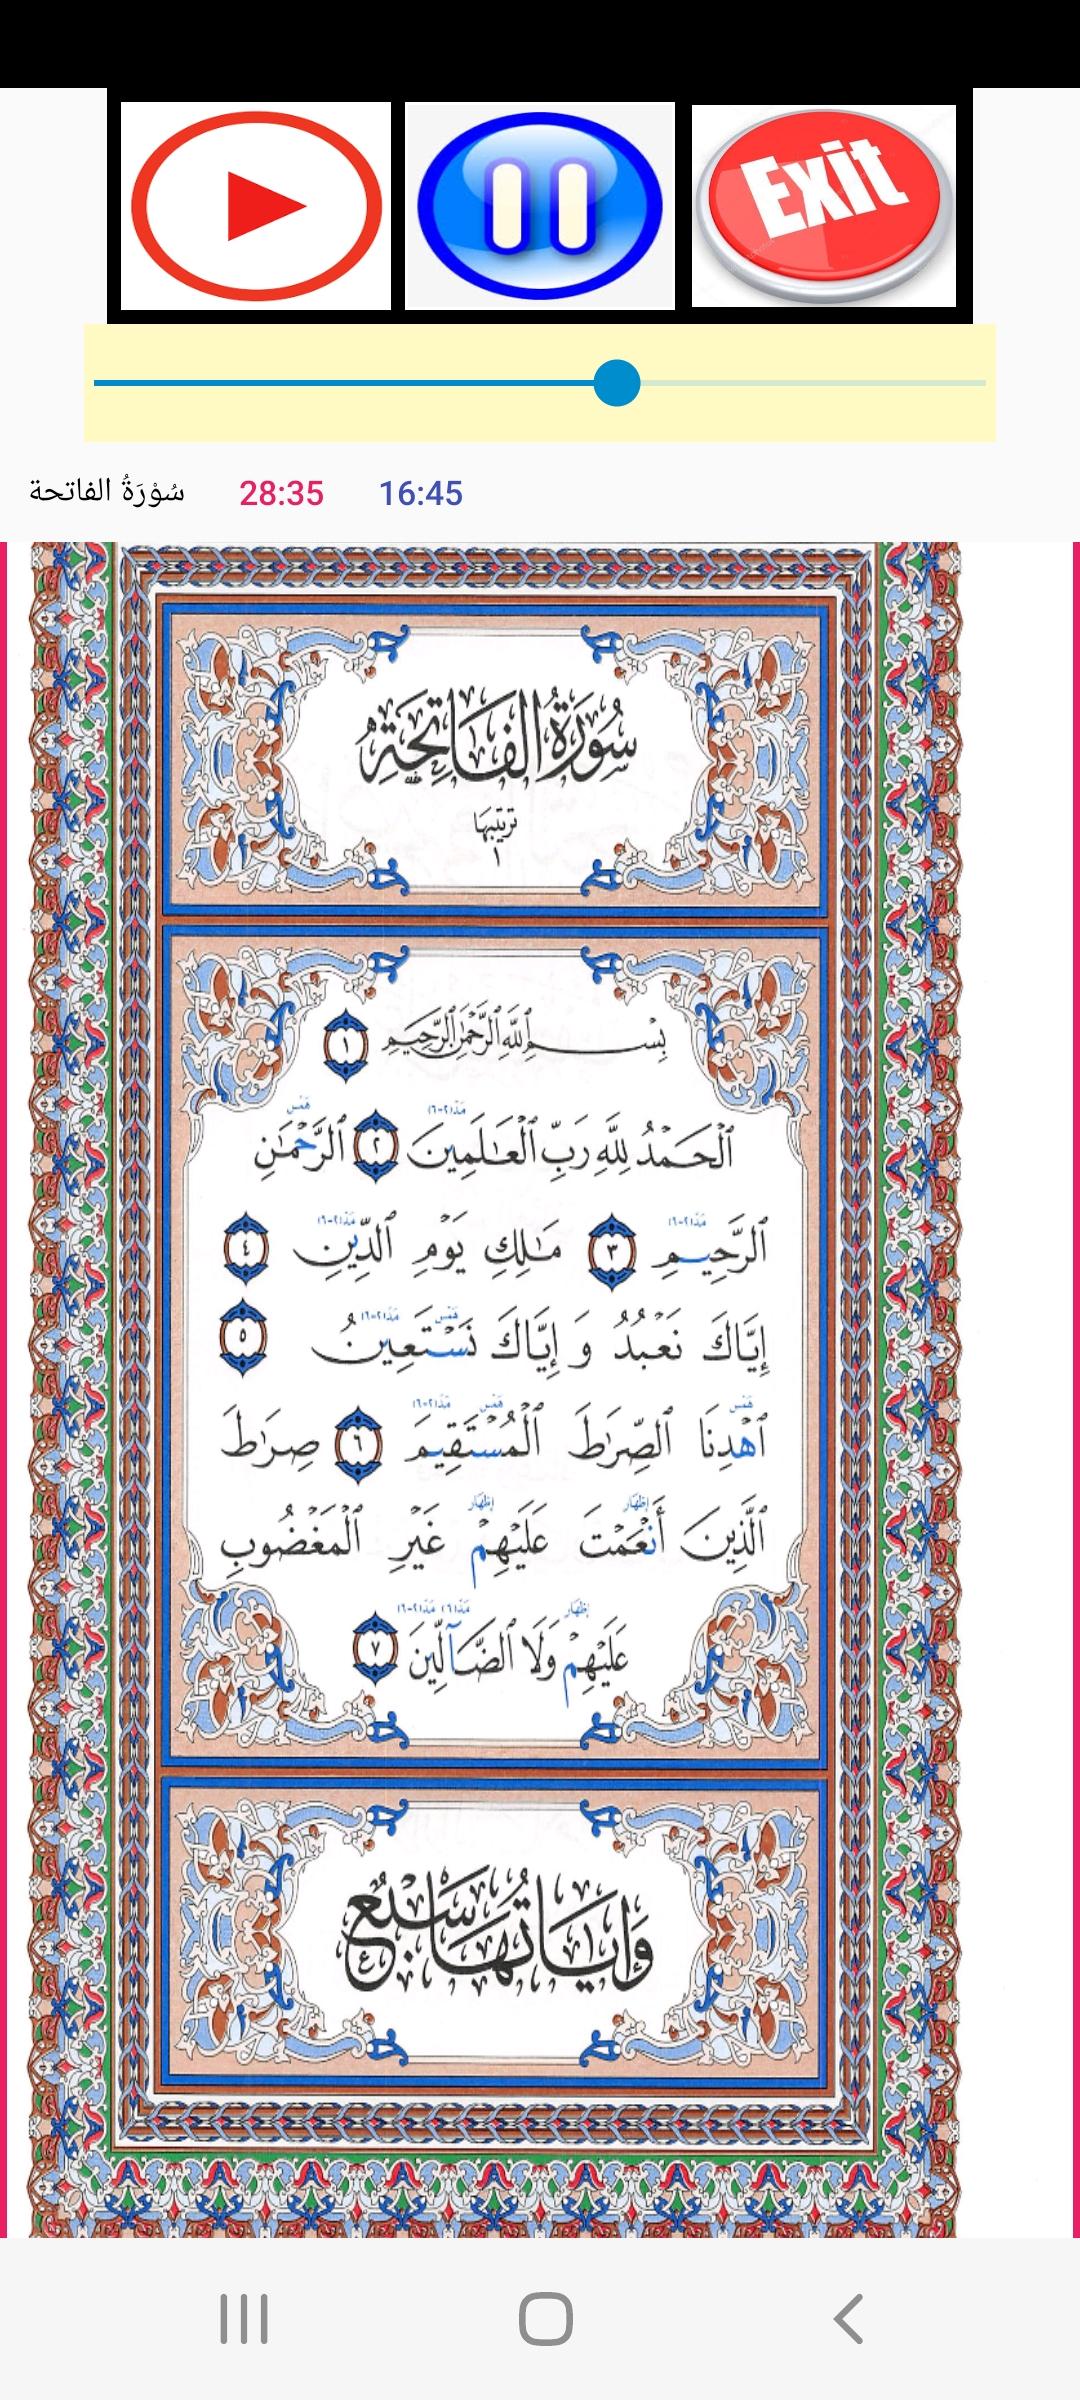 Exit
سُوْرَةُ الفاتحة 28:35 16:45
سُورَةُ الْفَاتِحَةِ
تَرتيبُهَا
١
بِسْمِ ٱللَّهِ ٱلرَّحْمَٰنِ ٱلرَّحِيمِ ١
مَدّ(٢-٦) هَمْس
ٱلْحَمْدُ لِلَّهِ رَبِّ ٱلْعَٰلَمِينَ ٢ ٱلرَّحْمَٰنِ
مَدّ(٢-٦) مَدّ(٢-٦)
ٱلرَّحِيمِ ٣ مَٰلِكِ يَوْمِ ٱلدِّينِ ٤
هَمْس مَدّ(٢-٦)
إِيَّاكَ نَعْبُدُ وَ إِيَّاكَ نَسْتَعِينُ ٥
هَمْس هَمْس مَدّ(٢-٦)
ٱهْدِنَا ٱلصِّرَٰطَ ٱلْمُسْتَقِيمَ ٦ صِرَٰطَ
إظهَار إظهَار
ٱلَّذِينَ أَنْعَمْتَ عَلَيْهِمْ غَيْرِ ٱلْمَغْضُوبِ
إظهَار مَدّ(٦) مَدّ(٢-٦)
عَلَيْهِمْ وَلَا ٱلضَّآلِّينَ ٧
وَايَاتُهَا سَبْعٌ